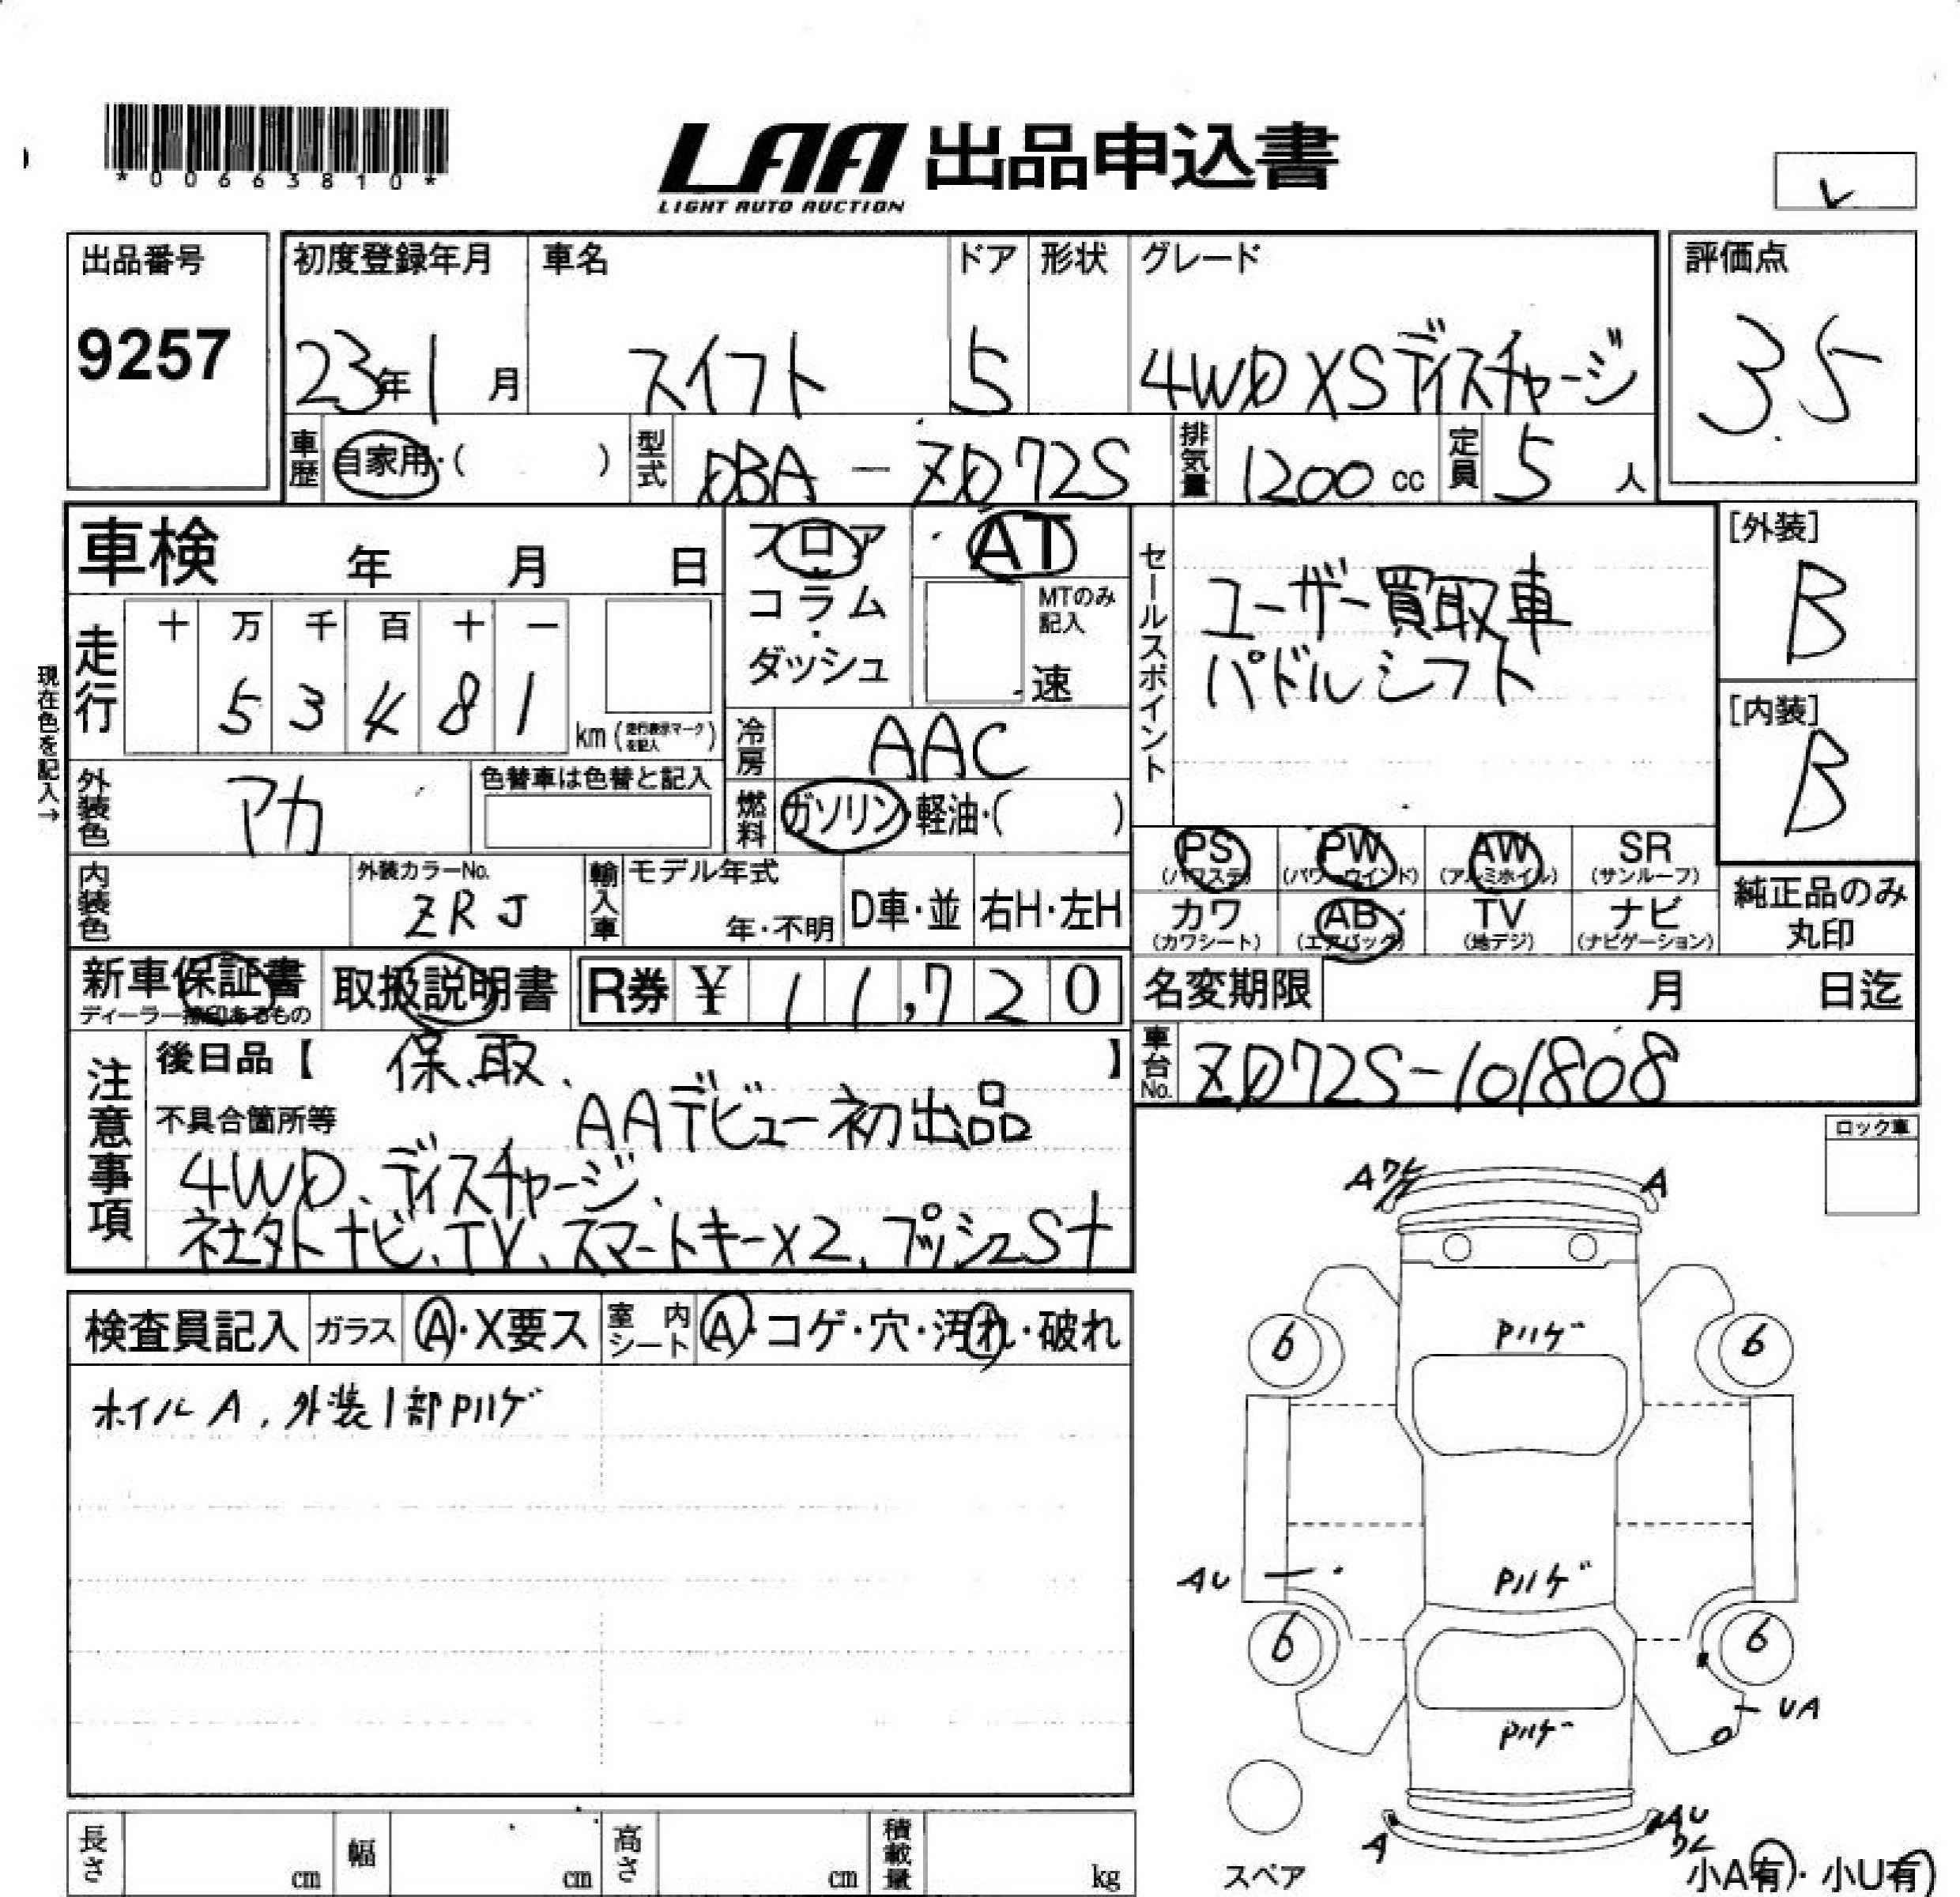 *00663810*
LAA 出品申込書
LIGHT AUTO AUCTION
レ
出品番号
9257
初度登録年月 車名 ドア 形状 グレード
23年1月 スイフト 5 4WD XSディスチャージ
評価点
3.5
車歴 自家用・( ) 型式 DBA-ZD72S 排気量 1200cc 定員 5人
車検 年 月 日
フロア
コラム
・
ダッシュ
AT
MTのみ
記入
速
セールスポイント
ユーザー買取車
パドルシフト
[外装]
B
[内装]
B
現在色を記入→
走行 十 万 千 百 十 一
5 3 4 8 1 km(走行表示マークを記入)
冷房 AAC
外装色 アカ 色替車は色替と記入
燃料 ガソリン・軽油・( )
内装色 外装カラーNo. ZRJ
輸入車 モデル年式 年・不明 D車・並 右H・左H
PS PW AW SR
(パワステ) (パワーウインド) (アルミホイル) (サンルーフ)
カワ AB TV ナビ
(カワシート) (エアバッグ) (地デジ) (ナビゲーション)
純正品のみ
丸印
新車保証書 取扱説明書 R券 ¥ 11,720
ディーラー捺印あるもの
名変期限 月 日迄
車台No. ZD72S-101808
注意事項
後日品【 保、取、 】
不具合箇所等 AAデビュー初出品
4WD、ディスチャージ、
社外ナビ、TV、スマートキーx2、プッシュSt
ロック車
検査員記入 ガラス A・X要ス 室内シート A・コゲ・穴・汚れ・破れ
ホイルA、外装1部Pハゲ
Aワレ A
Pハゲ
6 6
AU
Pハゲ
6 6
UA
Pハゲ
A
AU
ワレ
スペア
小A有・小U有
長さ cm 幅 cm 高さ cm 積載量 kg